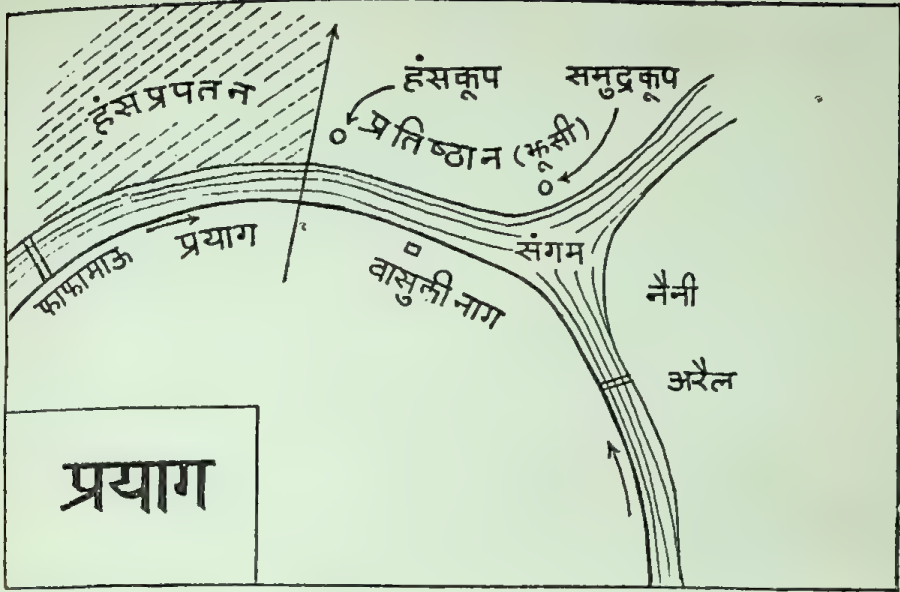 हंसप्रपतन
हंसकूप
समुद्रकूप
प्रतिष्ठान (झूसी)
फाफामाऊ
प्रयाग
वासुली नाग
संगम
नैनी
अरैल
प्रयाग